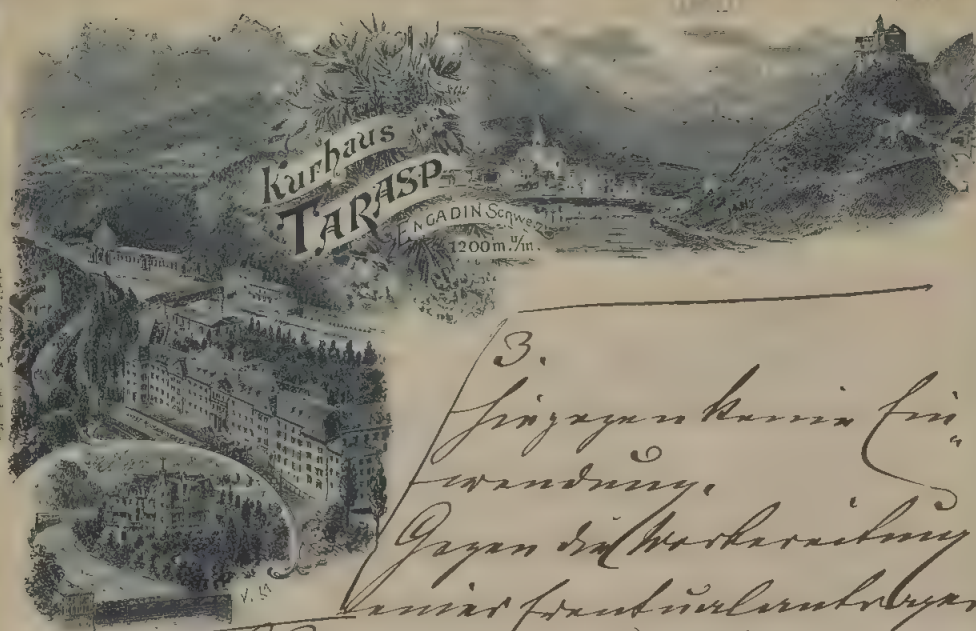 Kurhaus
TARASP
ENGADIN Schweiz
1200 m. ü/m.
3.
Hiegegen keine Ein„
wendung.
Gegen die Vorbereitung
eines Eventualantrages